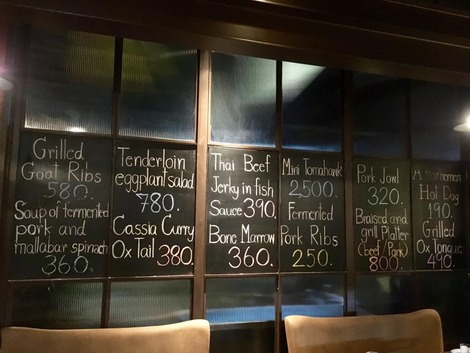 Grilled
Goat Ribs
580.
Soup of fermented
pork and
mallabar spinach
360.
Tenderloin
eggplant salad
780.
Cassia Curry
Ox Tail 380.
Thai Beef
Jerky in fish
Sauce 390.
Bone Marrow
360.
Mini Tomahawk
2,500.
Fermented
Pork Ribs
250.
Pork Jowl
320.
Braised and
grill Platter
(Beef/Pork)
800.
Hot Dog
190.
Grilled
Ox Tongue
490.